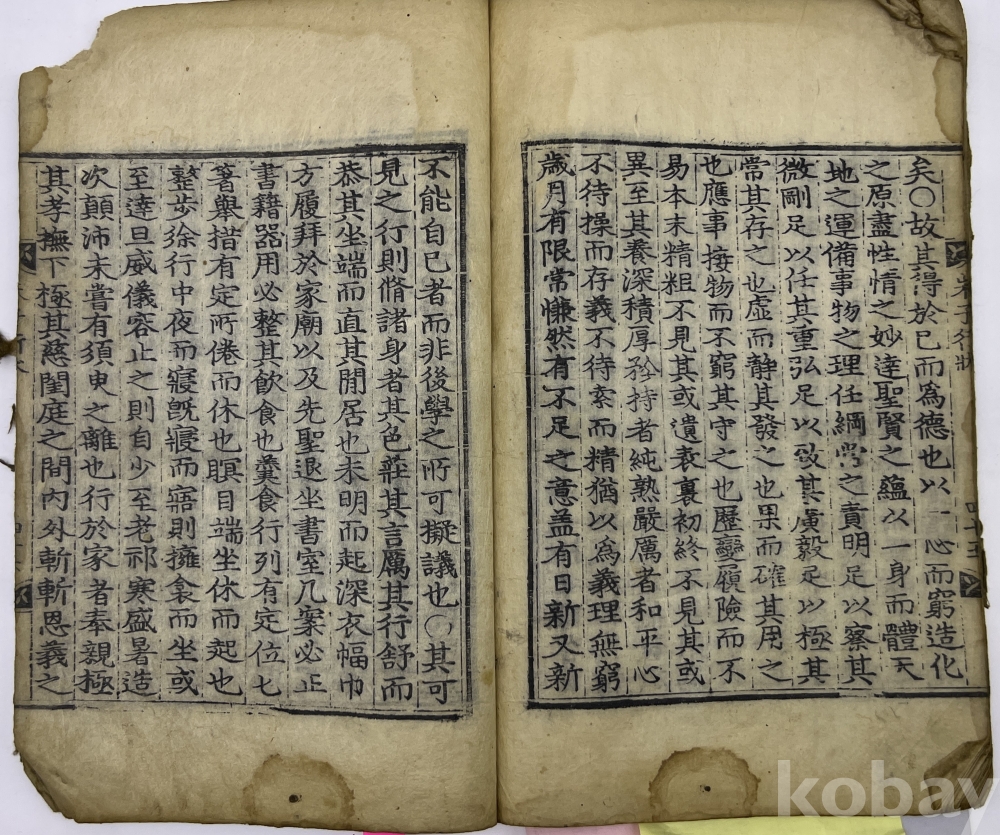 矣○故其得於己而爲德也以一心而窮造化
之原盡性情之妙達聖賢之蘊以一身而體天
地之運備事物之理任綱常之責明足以察其
微剛足以任其重弘足以致其廣毅足以極其
常其存之也虛而靜其發之也果而確其用之
也應事接物而不窮其守之也歷變履險而不
易本末精粗不見其或遺表裏初終不見其或
異至其養深積厚矜持者純熟嚴厲者和平心
不待操而存義不待索而精猶以爲義理無窮
歲月有限常慊然有不足之意盖有日新又新
不能自已者而非後學之所可擬議也○其可
見之行則脩諸身者其色莊其言厲其行舒而
恭其坐端而直其閒居也未明而起深衣幅巾
方履拜於家廟以及先聖退坐書室几案必正
書籍器用必整其飮食也羹食行列有定位匕
箸舉措有定所倦而休也瞑目端坐休而起也
整步徐行中夜而寢旣寢而寤則擁衾而坐或
至達旦威儀容止之則自少至老祁寒盛暑造
次顚沛未嘗有須臾之離也行於家者奉親極
其孝撫下極其慈閨庭之間內外斬斬恩義之
朱子行狀
kobay